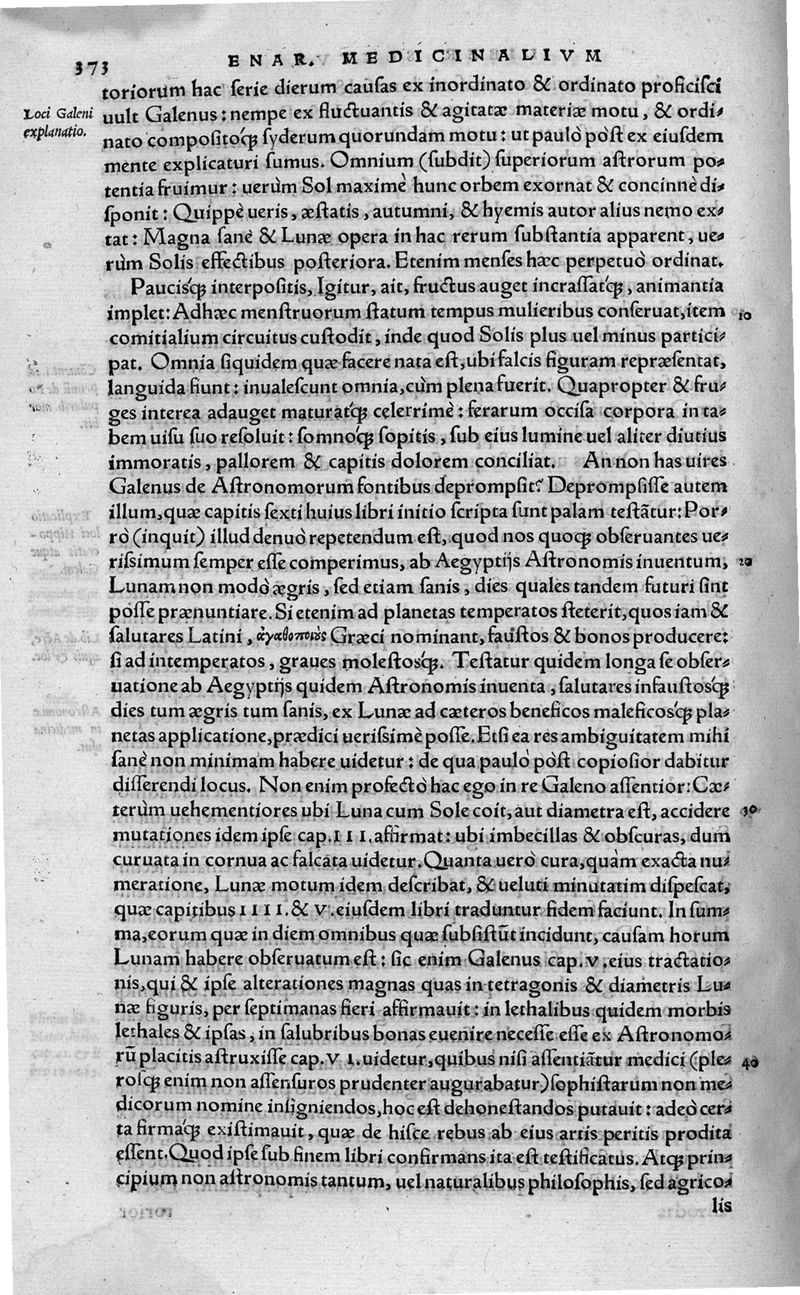 373
ENAR. MEDICINALIVM
toriorum hac ſerie dierum cauſas ex inordinato & ordinato proficiſci
Loci Galeni
explanatio.
uult Galenus: nempe ex fluctuantis & agitatæ materiæ motu, & ordi-
nato compoſitoq́; ſyderum quorundam motu: ut paulò pòſt ex eiuſdem
mente explicaturi ſumus. Omnium (ſubdit) ſuperiorum aſtrorum po-
tentia fruimur: uerùm Sol maximè hunc orbem exornat & concinnè di-
ſponit: Quippè ueris, æſtatis, autumni, & hyemis autor alius nemo ex-
tat: Magna ſanè & Lunæ opera in hac rerum ſubſtantia apparent, ue-
rùm Solis effectibus poſteriora. Etenim menſes hæc perpetuò ordinat.
Paucisq́; interpoſitis, Igitur, ait, fructus auget incraſſatq́;, animantia
implet: Adhæc menſtruorum ſtatum tempus mulieribus conſeruat, item
10
comitialium circuitus cuſtodit, inde quod Solis plus uel minus partici-
pat. Omnia ſiquidem quæ facere nata eſt, ubi falcis figuram repræſentat,
languida fiunt: inualeſcunt omnia, cùm plena fuerit. Quapropter & fru-
ges interea adauget maturatq́; celerrimè: ferarum occiſa corpora in ta-
bem uiſu ſuo reſoluit: ſomnoq́; ſopitis, ſub eius lumine uel aliter diutius
immoratis, pallorem & capitis dolorem conciliat. An non has uires
Galenus de Aſtronomorum fontibus deprompſit? Deprompſiſſe autem
illum, quæ capitis ſexti huius libri initio ſcripta ſunt palam teſtãtur: Por-
rò (inquit) illud denuò repetendum eſt, quod nos quoq; obſeruantes ue-
riſsimum ſemper eſſe comperimus, ab Aegyptijs Aſtronomis inuentum,
20
Lunam non modò ægris, ſed etiam ſanis, dies quales tandem futuri ſint
poſſe prænuntiare. Si etenim ad planetas temperatos ſteterit, quos iam &
ſalutares Latini, ἀγαθοποιὺς Græci nominant, fauſtos & bonos producere:
ſi ad intemperatos, graues moleſtosq́;. Teſtatur quidem longa ſe obſer-
uatione ab Aegyptijs quidem Aſtronomis inuenta, ſalutares infauſtosq́;
dies tum ægris tum ſanis, ex Lunæ ad cæteros beneficos maleficosq́; pla-
netas applicatione, prædici ueriſsimè poſſe. Etſi ea res ambiguitatem mihi
ſanè non minimam habere uidetur: de qua paulò pòſt copioſior dabitur
diſſerendi locus. Non enim profectò hac ego in re Galeno aſſentior: Cæ-
terùm uehementiores ubi Luna cum Sole coit, aut diametra eſt, accidere
30
mutationes idem ipſe cap. III. affirmat: ubi imbecillas & obſcuras, dum
curuata in cornua ac falcata uidetur. Quanta uerò cura, quàm exacta nu-
meratione, Lunæ motum idem deſcribat, & ueluti minutatim diſpeſcat,
quæ capitibus IIII. & V. eiuſdem libri traduntur fidem faciunt. In ſum-
ma, eorum quæ in diem omnibus quæ ſubſiſtũt incidunt, cauſam horum
Lunam habere obſeruatum eſt: ſic enim Galenus cap. V. eius tractatio-
nis, qui & ipſe alterationes magnas quas in tetragonis & diametris Lu-
næ figuris, per ſeptimanas fieri affirmauit: in lethalibus quidem morbis
lethales & ipſas, in ſalubribus bonas euenire neceſſe eſſe ex Aſtronomo-
rũ placitis aſtruxiſſe cap. V I. uidetur, quibus niſi aſſentiãtur medici (ple-
40
rosq́; enim non aſſenſuros prudenter augurabatur) ſophiſtarum non me-
dicorum nomine inſigniendos, hoc eſt dehoneſtandos putauit: adeò cer-
ta firmaq́; exiſtimauit, quæ de hiſce rebus ab eius artis peritis prodita
eſſent. Quod ipſe ſub finem libri confirmans ita eſt teſtificatus. Atq; prin-
cipium non aſtronomis tantum, uel naturalibus philoſophis, ſed agrico-
lis